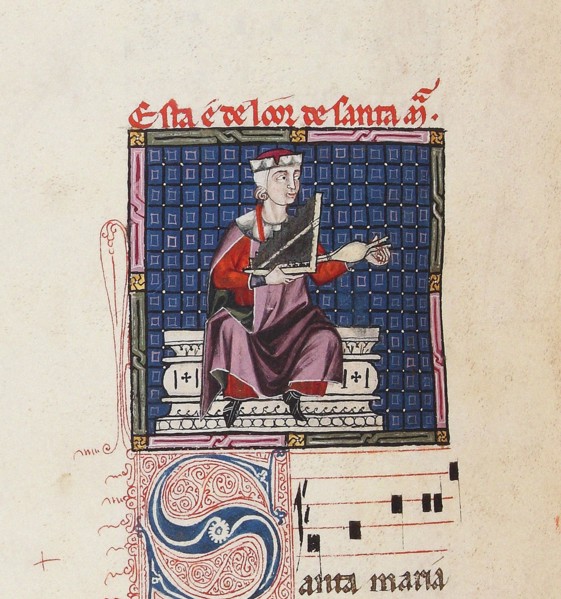 Esta é de loor de santa mͣ.
Santa maria